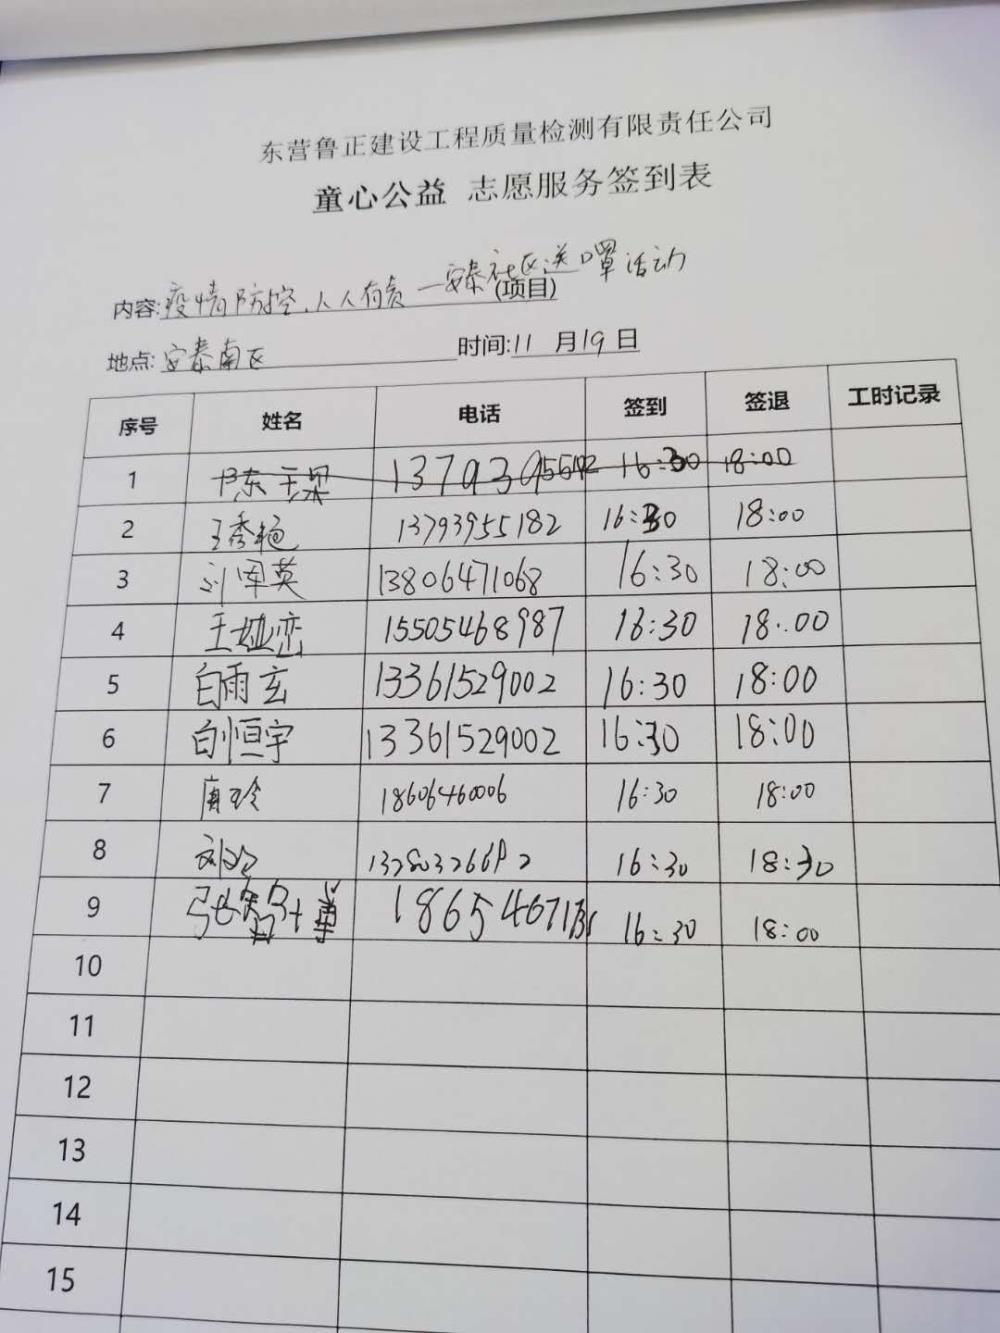 东营鲁正建设工程质量检测有限责任公司
童心公益 志愿服务签到表
内容:疫情防控,人人有责—安泰社区送口罩活动(项目)
地点:安泰南区 时间:11月19日
序号 姓名 电话 签到 签退 工时记录
1 16:30 18:00
2 王秀艳 13793955182 16:30 18:00
3 刘军英 13806471068 16:30 18:00
4 王娅恋 15505468987 16:30 18:00
5 白雨玄 13361529002 16:30 18:00
6 白恒宇 13361529002 16:30 18:00
7 唐玲 18606460006 16:30 18:00
8 16:30 18:30
9 16:30 18:00
10
11
12
13
14
15